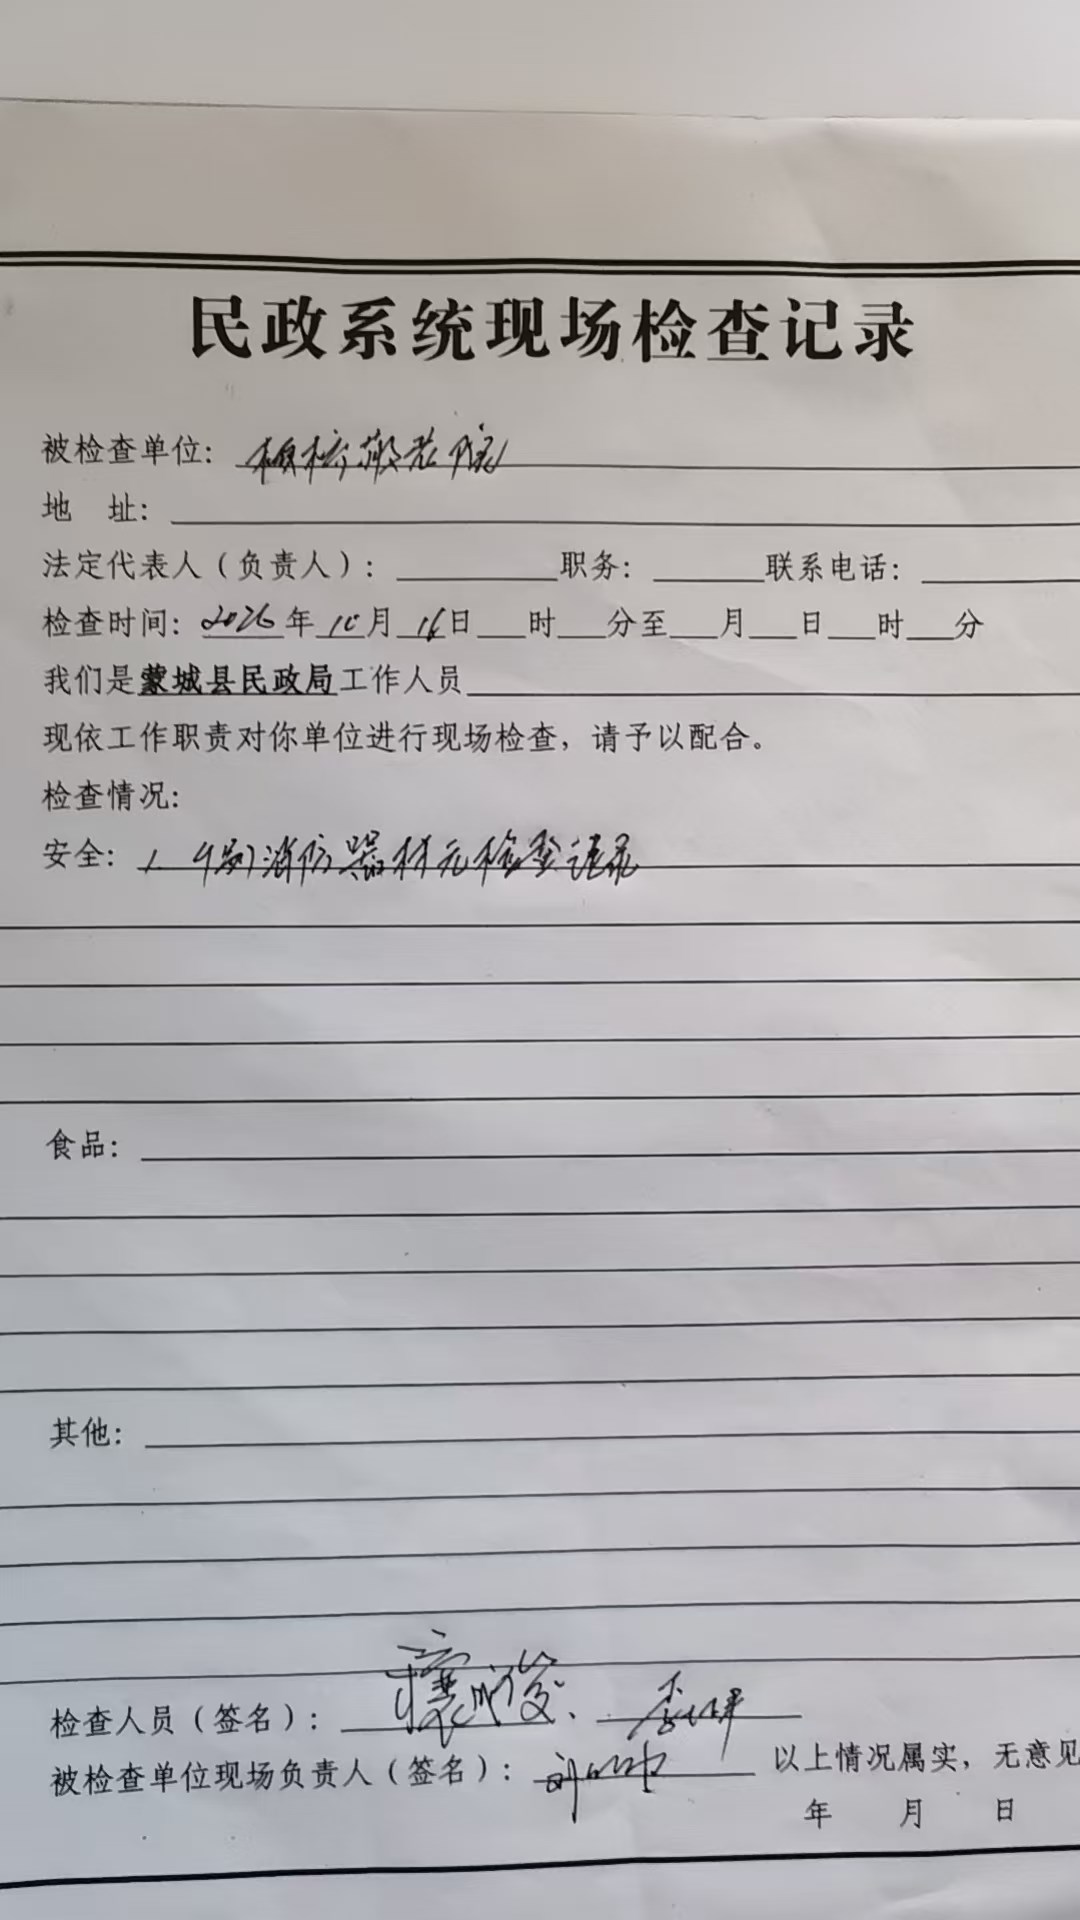 民政系统现场检查记录
被检查单位：敬老院
地　址：
法定代表人（负责人）：　职务：　联系电话：
检查时间：2026年10月16日　时　分至　月　日　时　分
我们是蒙城县民政局工作人员
现依工作职责对你单位进行现场检查，请予以配合。
检查情况：
安全：1、个别消防器材无检查记录
食品：
其他：
检查人员（签名）：
被检查单位现场负责人（签名）：　以上情况属实，无意见
年　月　日